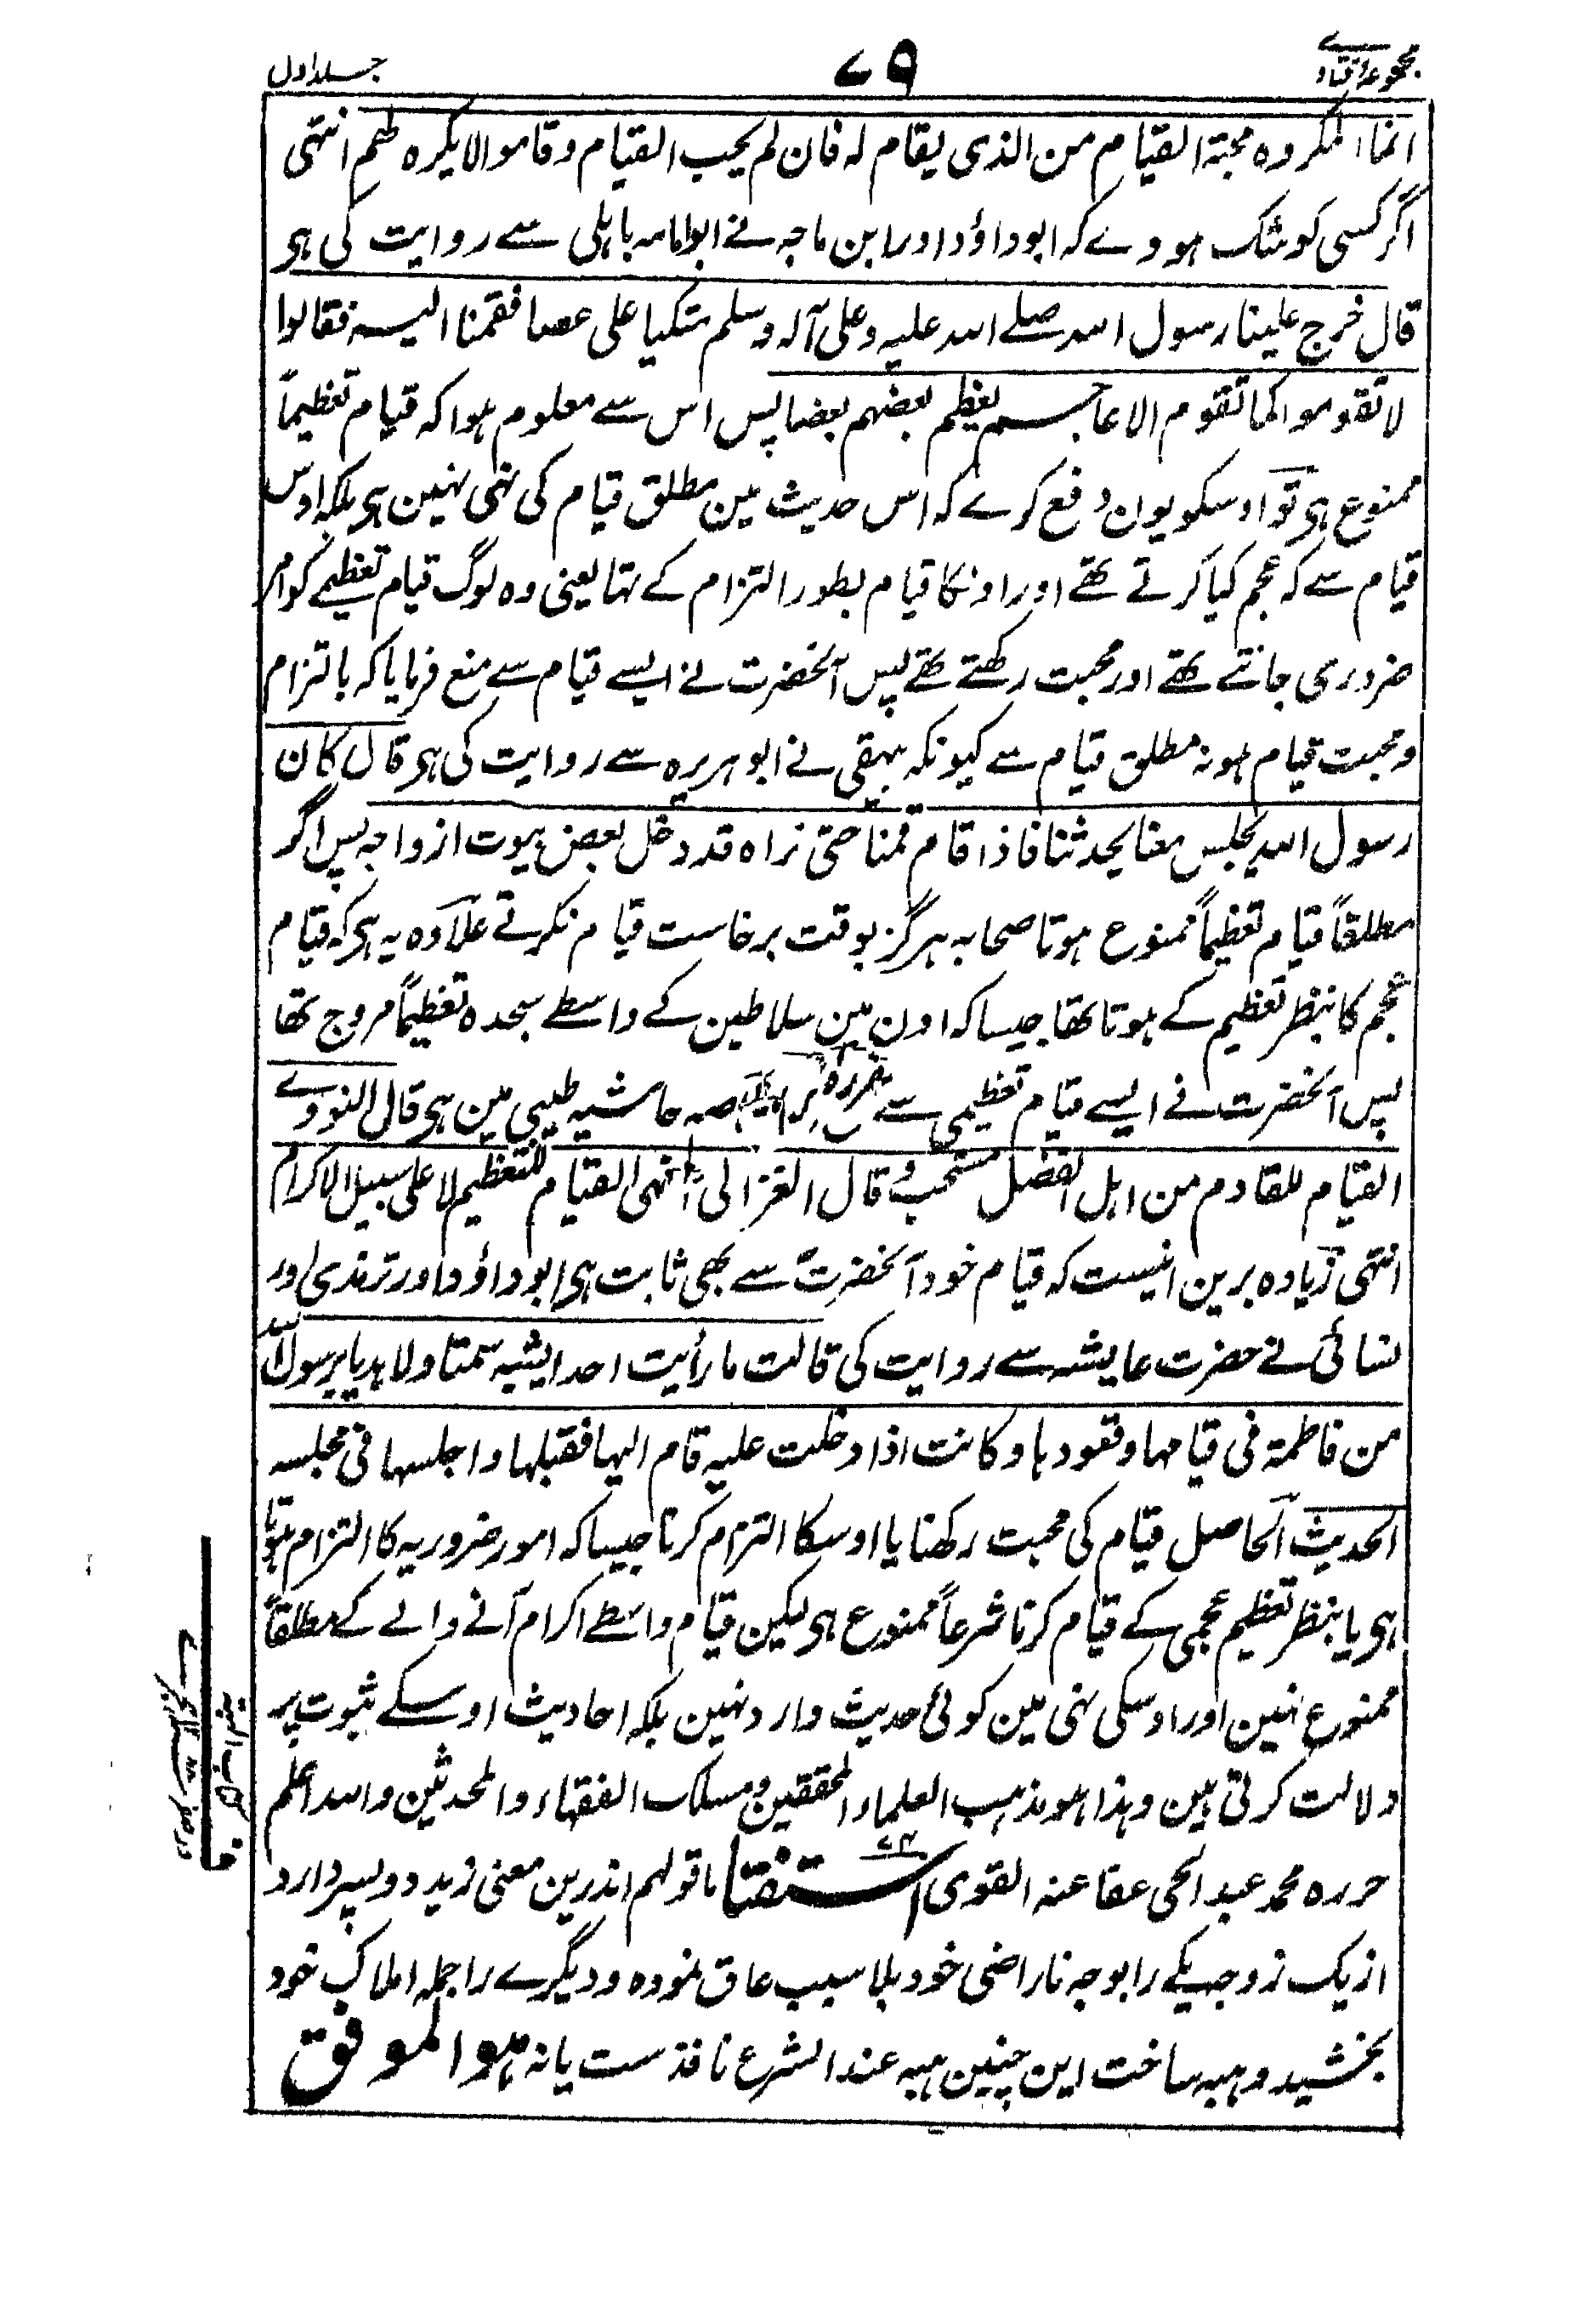 مجموعہ فتاوے
۷۹
جلد اول
انما المکروه محبة القیام من الذی یقام له فان لم یحب القیام وقاموا لا یکره لهم انتهی
اگر کسی کو شک ہووے کہ ابوداؤد اور ابن ماجہ نے ابوامامہ باہلی سے روایت کی ہی
قال خرج علینا رسول الله صلے الله علیه وعلی آله وسلم متکیا علی عصا فقمنا الیه فقالوا
لا تقوموا کما تقوم الاعاجم یعظم بعضهم بعضا پس اس سے معلوم ہوا کہ قیام تعظیماً
ممنوع ہی تو اوسکو یون دفع کرے کہ اس حدیث مین مطلق قیام کی نہی نہین ہی بلکہ اوس
قیام سے کہ عجم کیا کرتے تھے اور اونکا قیام بطور التزام کے تہا یعنی وہ لوگ قیام تعظیمے کو امر
ضروری جانتے تھے اور محبت رکھتے تھے پس آنحضرت نے ایسے قیام سے منع فرمایا کہ بالتزام
ومحبت قیام ہو نہ مطلق قیام سے کیونکہ بیہقی نے ابوہریرہ سے روایت کی ہی قال کان
رسول الله یجلس معنا یحدثنا فاذا قام قمنا حتی نراه قد دخل بعض بیوت ازواجه پس اگر
مطلقاً قیام تعظیماً ممنوع ہوتا صحابہ ہرگز بوقت برخاست قیام نکرتے علاوہ یہ ہی کہ قیام
عجم کا بنظر تعظیم کے ہوتا تھا جیسا کہ اون مین سلاطین کے واسطے سجدہ تعظیماً مروج تھا
پس آنحضرت نے ایسے قیام تعظیمی سے حاشیہ طیبی مین ہی قال النووے
القیام للقادم من اهل الفضل مستحب وقال الغزالی انهی القیام للتعظیم لا علی سبیل الاکرام
انتهی زیادہ برین انیست کہ قیام خود آنحضرت سے بھی ثابت ہی ابوداؤد اور ترمذی اور
نسائی نے حضرت عایشہ سے روایت کی قالت ما رأیت احدا یشبه سمتا ولا هدیا برسول الله
من فاطمة فی قیامها وقعودها وکانت اذا دخلت علیه قام الیها فقبلها واجلسها فی مجلسه
الحدیث الحاصل قیام کی محبت رکھنا یا اوسکا التزام کرنا جیسا کہ امور ضروریہ کا التزام ہوتا
ہی یا بنظر تعظیم عجمی کے قیام کرنا شرعاً ممنوع ہی لیکن قیام واسطے اکرام آنے والے کے مطلقاً
ممنوع نہین اور اوسکی نہی مین کوئی حدیث وارد نہین بلکہ احادیث اوسکے ثبوت پر
دلالت کرتی ہین وهذا هو مذهب العلماء المحققین ومسلک الفقهاء والمحدثین والله اعلم
حرره محمد عبد الحی عفا عنه القوی استفتا ما قولهم اندرین معنی زید دو پسر دارد
از یک زوجہ یکے را بوجہ ناراضی خود بلا سبب عاق نمودہ و دیگرے را جملہ املاک خود
بخشید و ہبہ ساخت این چنین ہبہ عند الشرع نافذ ست یا نہ هو الموفق
کتاب الہبۃ